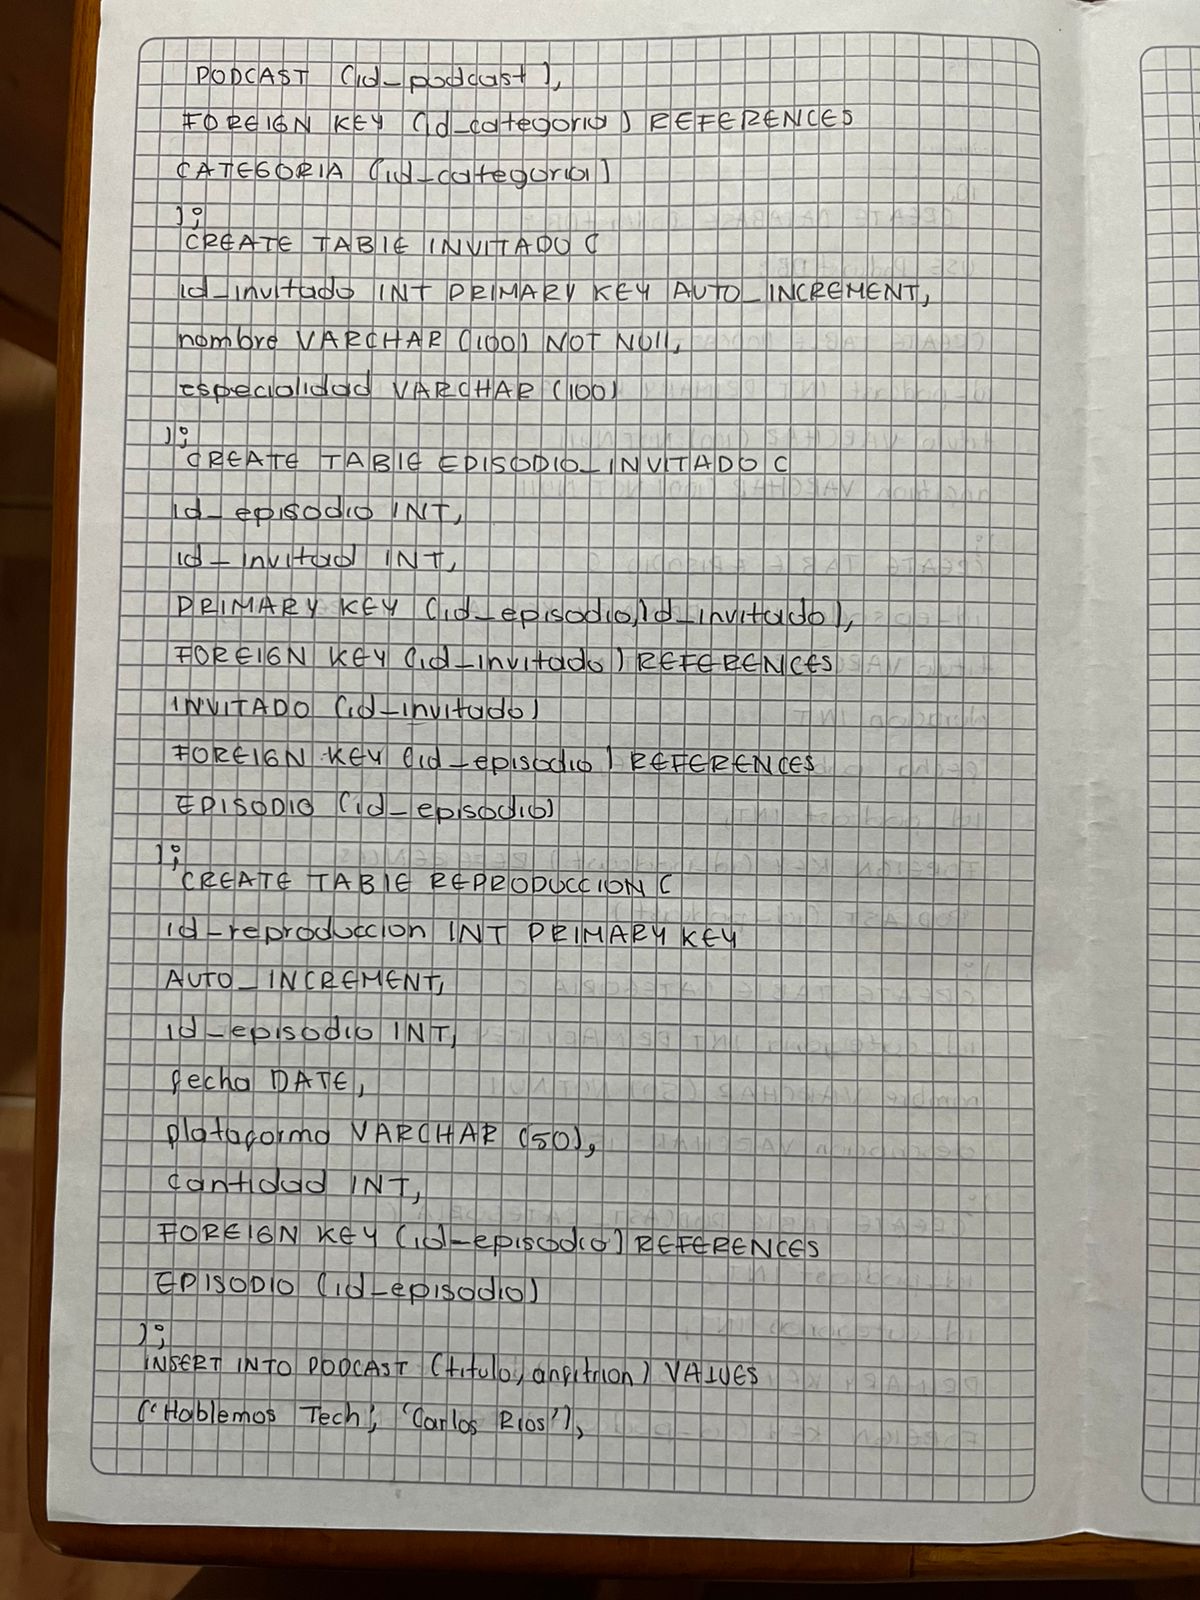 PODCAST (id_podcast),
FOREIGN KEY (id_categoria) REFERENCES
CATEGORIA (id_categoria)
);
CREATE TABLE INVITADO (
id_invitado INT PRIMARY KEY AUTO_INCREMENT,
nombre VARCHAR (100) NOT NULL,
especialidad VARCHAR (100)
);
CREATE TABLE EPISODIO_INVITADO (
id_episodio INT,
id_invitad INT,
PRIMARY KEY (id_episodio,id_invitado),
FOREIGN KEY (id_invitado) REFERENCES
INVITADO (id_invitado)
FOREIGN KEY (id_episodio) REFERENCES
EPISODIO (id_episodio)
);
CREATE TABLE REPRODUCCION (
id_reproduccion INT PRIMARY KEY
AUTO_INCREMENT,
id_episodio INT,
fecha DATE,
plataforma VARCHAR (50),
cantidad INT,
FOREIGN KEY (id_episodio) REFERENCES
EPISODIO (id_episodio)
);
INSERT INTO PODCAST (titulo, anfitrion) VALUES
('Hablemos Tech', 'Carlos Rios'),